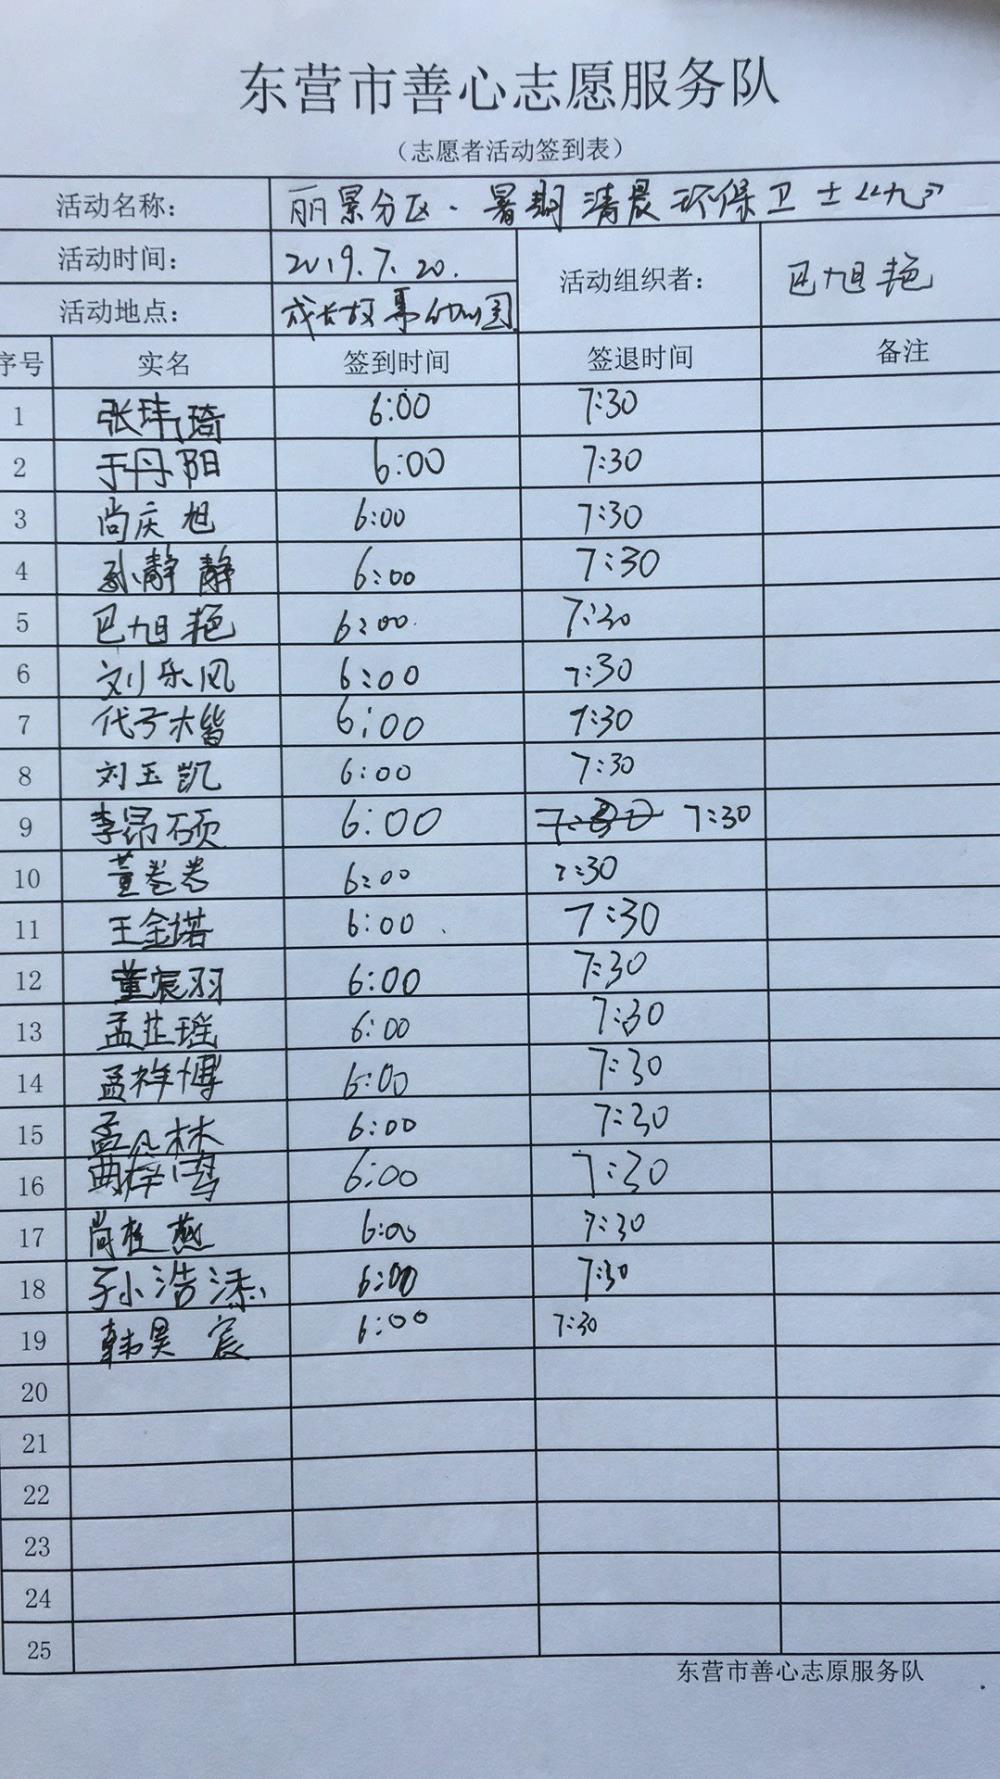 东营市善心志愿服务队
（志愿者活动签到表）
活动名称： 丽景分区．暑期清晨环保卫士《九》
活动时间： 2019.7.20. 活动组织者： 巴旭艳
活动地点： 成长故事幼儿园
序号 实名 签到时间 签退时间 备注
1 张玮琦 6:00 7:30
2 于丹阳 6:00 7:30
3 尚庆旭 6:00 7:30
4 孙静静 6:00 7:30
5 巴旭艳 6:00 7:30
6 刘乐风 6:00 7:30
7 代子木皆 6:00 7:30
8 刘玉凯 6:00 7:30
9 李昂硕 6:00 7:30
10 董卷卷 6:00 7:30
11 王金诺 6:00 7:30
12 董宸羽 6:00 7:30
13 孟芷瑶 6:00 7:30
14 孟祥博 6:00 7:30
15 孟凡林 6:00 7:30
16 6:00 7:30
17 尚桂燕 6:00 7:30
18 孙浩添 6:00 7:30
19 韩昊宸 6:00 7:30
20
21
22
23
24
25
东营市善心志原服务队